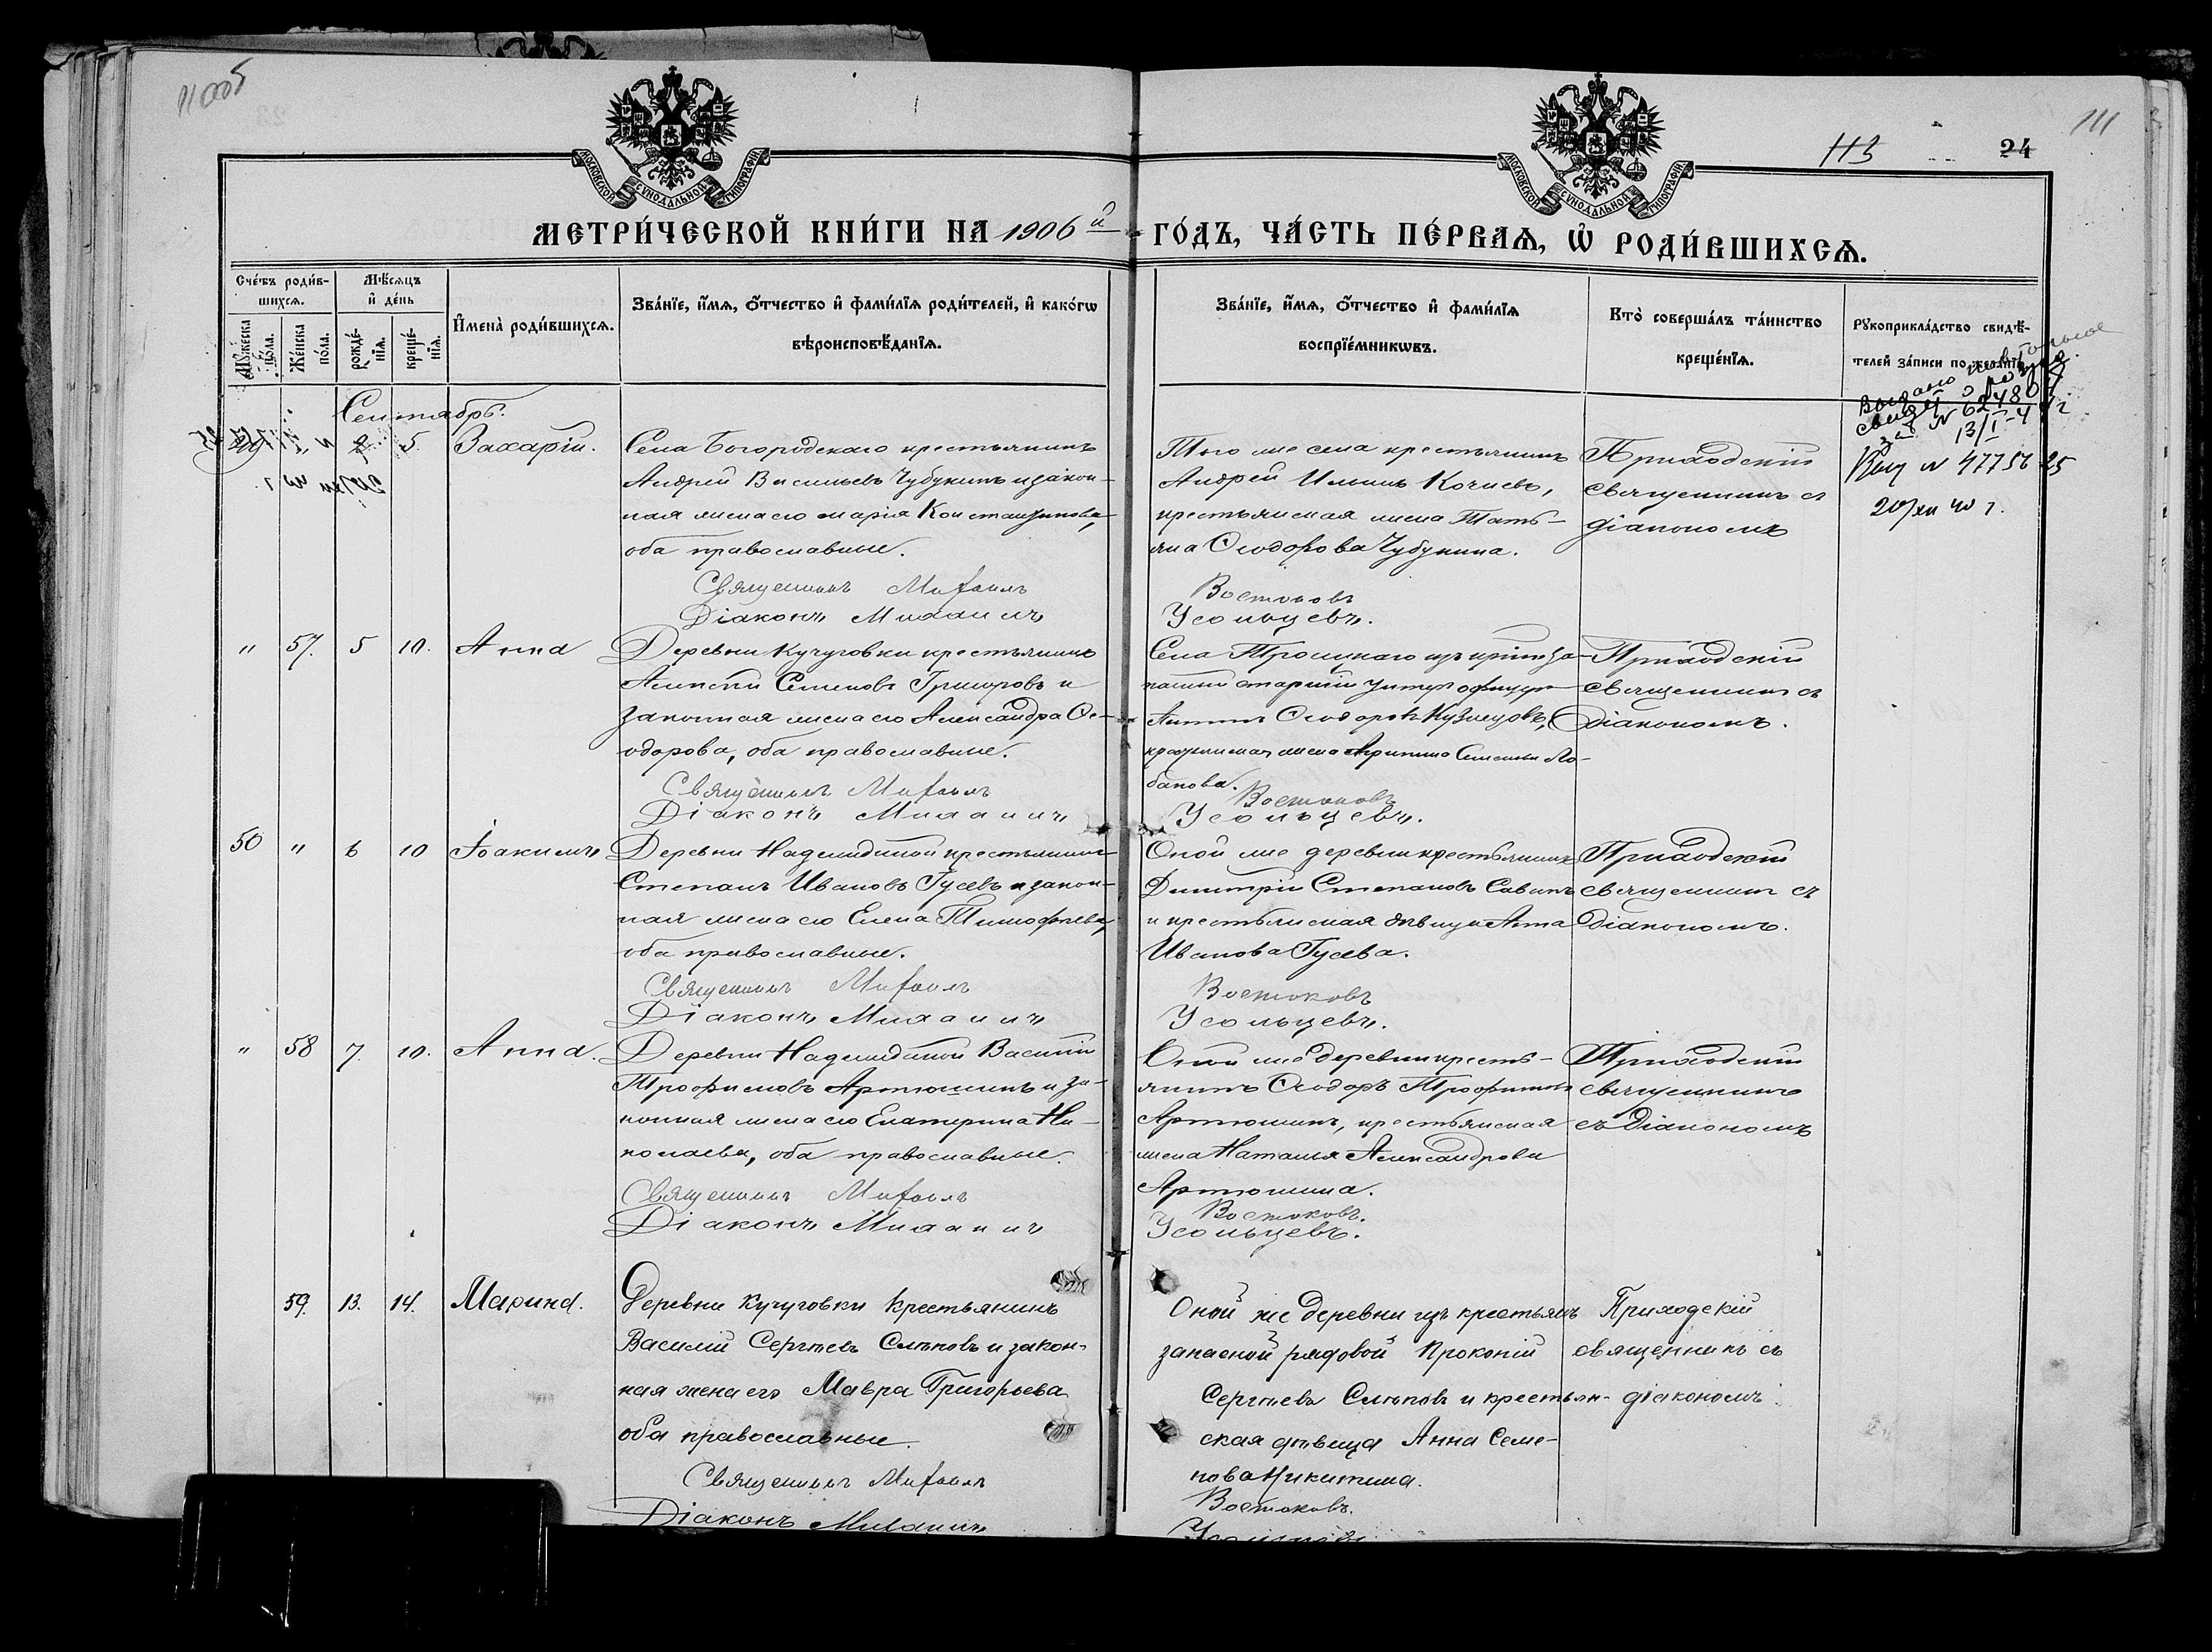 11005
МОСКОВСКОЙ СѴНОДАЛЬНОЙ ТИПОГРАФІИ
МОСКОВСКОЙ СѴНОДАЛЬНОЙ ТИПОГРАФІИ
113
24
111
МЕТРИ́ЧЕСКОЙ КНИ́ГИ НА 1906й ГО́ДЪ, ЧА́СТЬ ПЕ́РВАѦ, Ѡ҆ РОДИ́ВШИХСѦ.
Сче́тъ роди́в-
шихсѧ.
Мѣ́сѧцъ
и҆ де́нь
Мꙋ́жеска по́ла.
Же́нска по́ла.
рожде́-
нїѧ.
креще́-
нїѧ.
И҆мена̀ роди́вшихсѧ.
Зва́нїе, и҆́мѧ, ѻ҆́тчество и҆ фами́лїѧ роди́телей, и҆ како́гѡ
вѣроисповѣ́данїѧ.
Зва́нїе, и҆́мѧ, ѻ҆́тчество и҆ фами́лїѧ
воспрїе́мникѡвъ.
Кто̀ соверша́лъ та́инство
креще́нїѧ.
Рꙋкоприкла́дство свидѣ́-
телей за́писи по жела́нїю.
Сентябрь.
2 5 Захарій.
Села Богородскаго крестьянинъ
Андрей Васильевъ Чубукинъ и закон-
ная жена его Марія Константинова,
оба православные.
Священникъ Михаилъ
Діаконъ Михаилъ
Того же села крестьянинъ
Андрей Ильинъ Кочневъ,
крестьянская жена Тать-
яна Ѳеодорова Чубукина.
Востоковъ
Усольцевъ.
Приходскій
священникъ съ
діакономъ
Выдано
свидет.
N 62480
13/I-4
Выд N 47756
20/XII 40 г.
" 57. 5 10. Анна
Деревни Кучуговки крестьянинъ
Алексѣй Семеновъ Григоровъ и
законная жена его Александра Ѳе-
одорова, оба православные.
Священникъ Михаилъ
Діаконъ Михаилъ
Села Троицкаго изъ крестьянъ за-
пасный старшій унтеръ офицеръ
Антипъ Ѳеодоровъ Кузнецовъ,
крестьянская жена Акулина Семенова Ло-
банова.
Востоковъ
Усольцевъ.
Приходскій
священникъ съ
діакономъ.
50 " 6 10 Іоакимъ
Деревни Надеждиной крестьянинъ
Степанъ Ивановъ Гусевъ и закон-
ная жена его Елена Тимофеева,
оба православные.
Священникъ Михаилъ
Діаконъ Михаилъ
Оной же деревни крестьянинъ
Димитрій Степановъ Савинъ
и крестьянская дѣвица Анна
Иванова Гусева.
Востоковъ
Усольцевъ.
Приходскій
священникъ съ
діакономъ.
" 58 7. 10. Анна.
Деревни Надеждиной Василій
Трофимовъ Артюшинъ и за-
конная жена его Екатерина Ни-
колаева, оба православные.
Священникъ Михаилъ
Діаконъ Михаилъ
Оной же деревни кресть-
янинъ Ѳеодоръ Трофимовъ
Артюшинъ, крестьянская
жена Наталья Александрова
Артюшина.
Востоковъ.
Усольцевъ.
Приходскій
священникъ
съ діакономъ
59. 13. 14. Марина.
Деревни Кучуговки крестьянинъ
Василій Сергѣевъ Слѣповъ и закон-
ная жена его Мавра Григорьева
оба православные.
Священникъ Михаилъ
Діаконъ Михаилъ
Оной же деревни изъ крестьянъ
запасной рядовой Прокопій
Сергѣевъ Слѣповъ и крестьян-
ская дѣвица Анна Семе-
нова Никитина.
Востоковъ.
Усольцевъ.
Приходскій
священникъ съ
діакономъ.